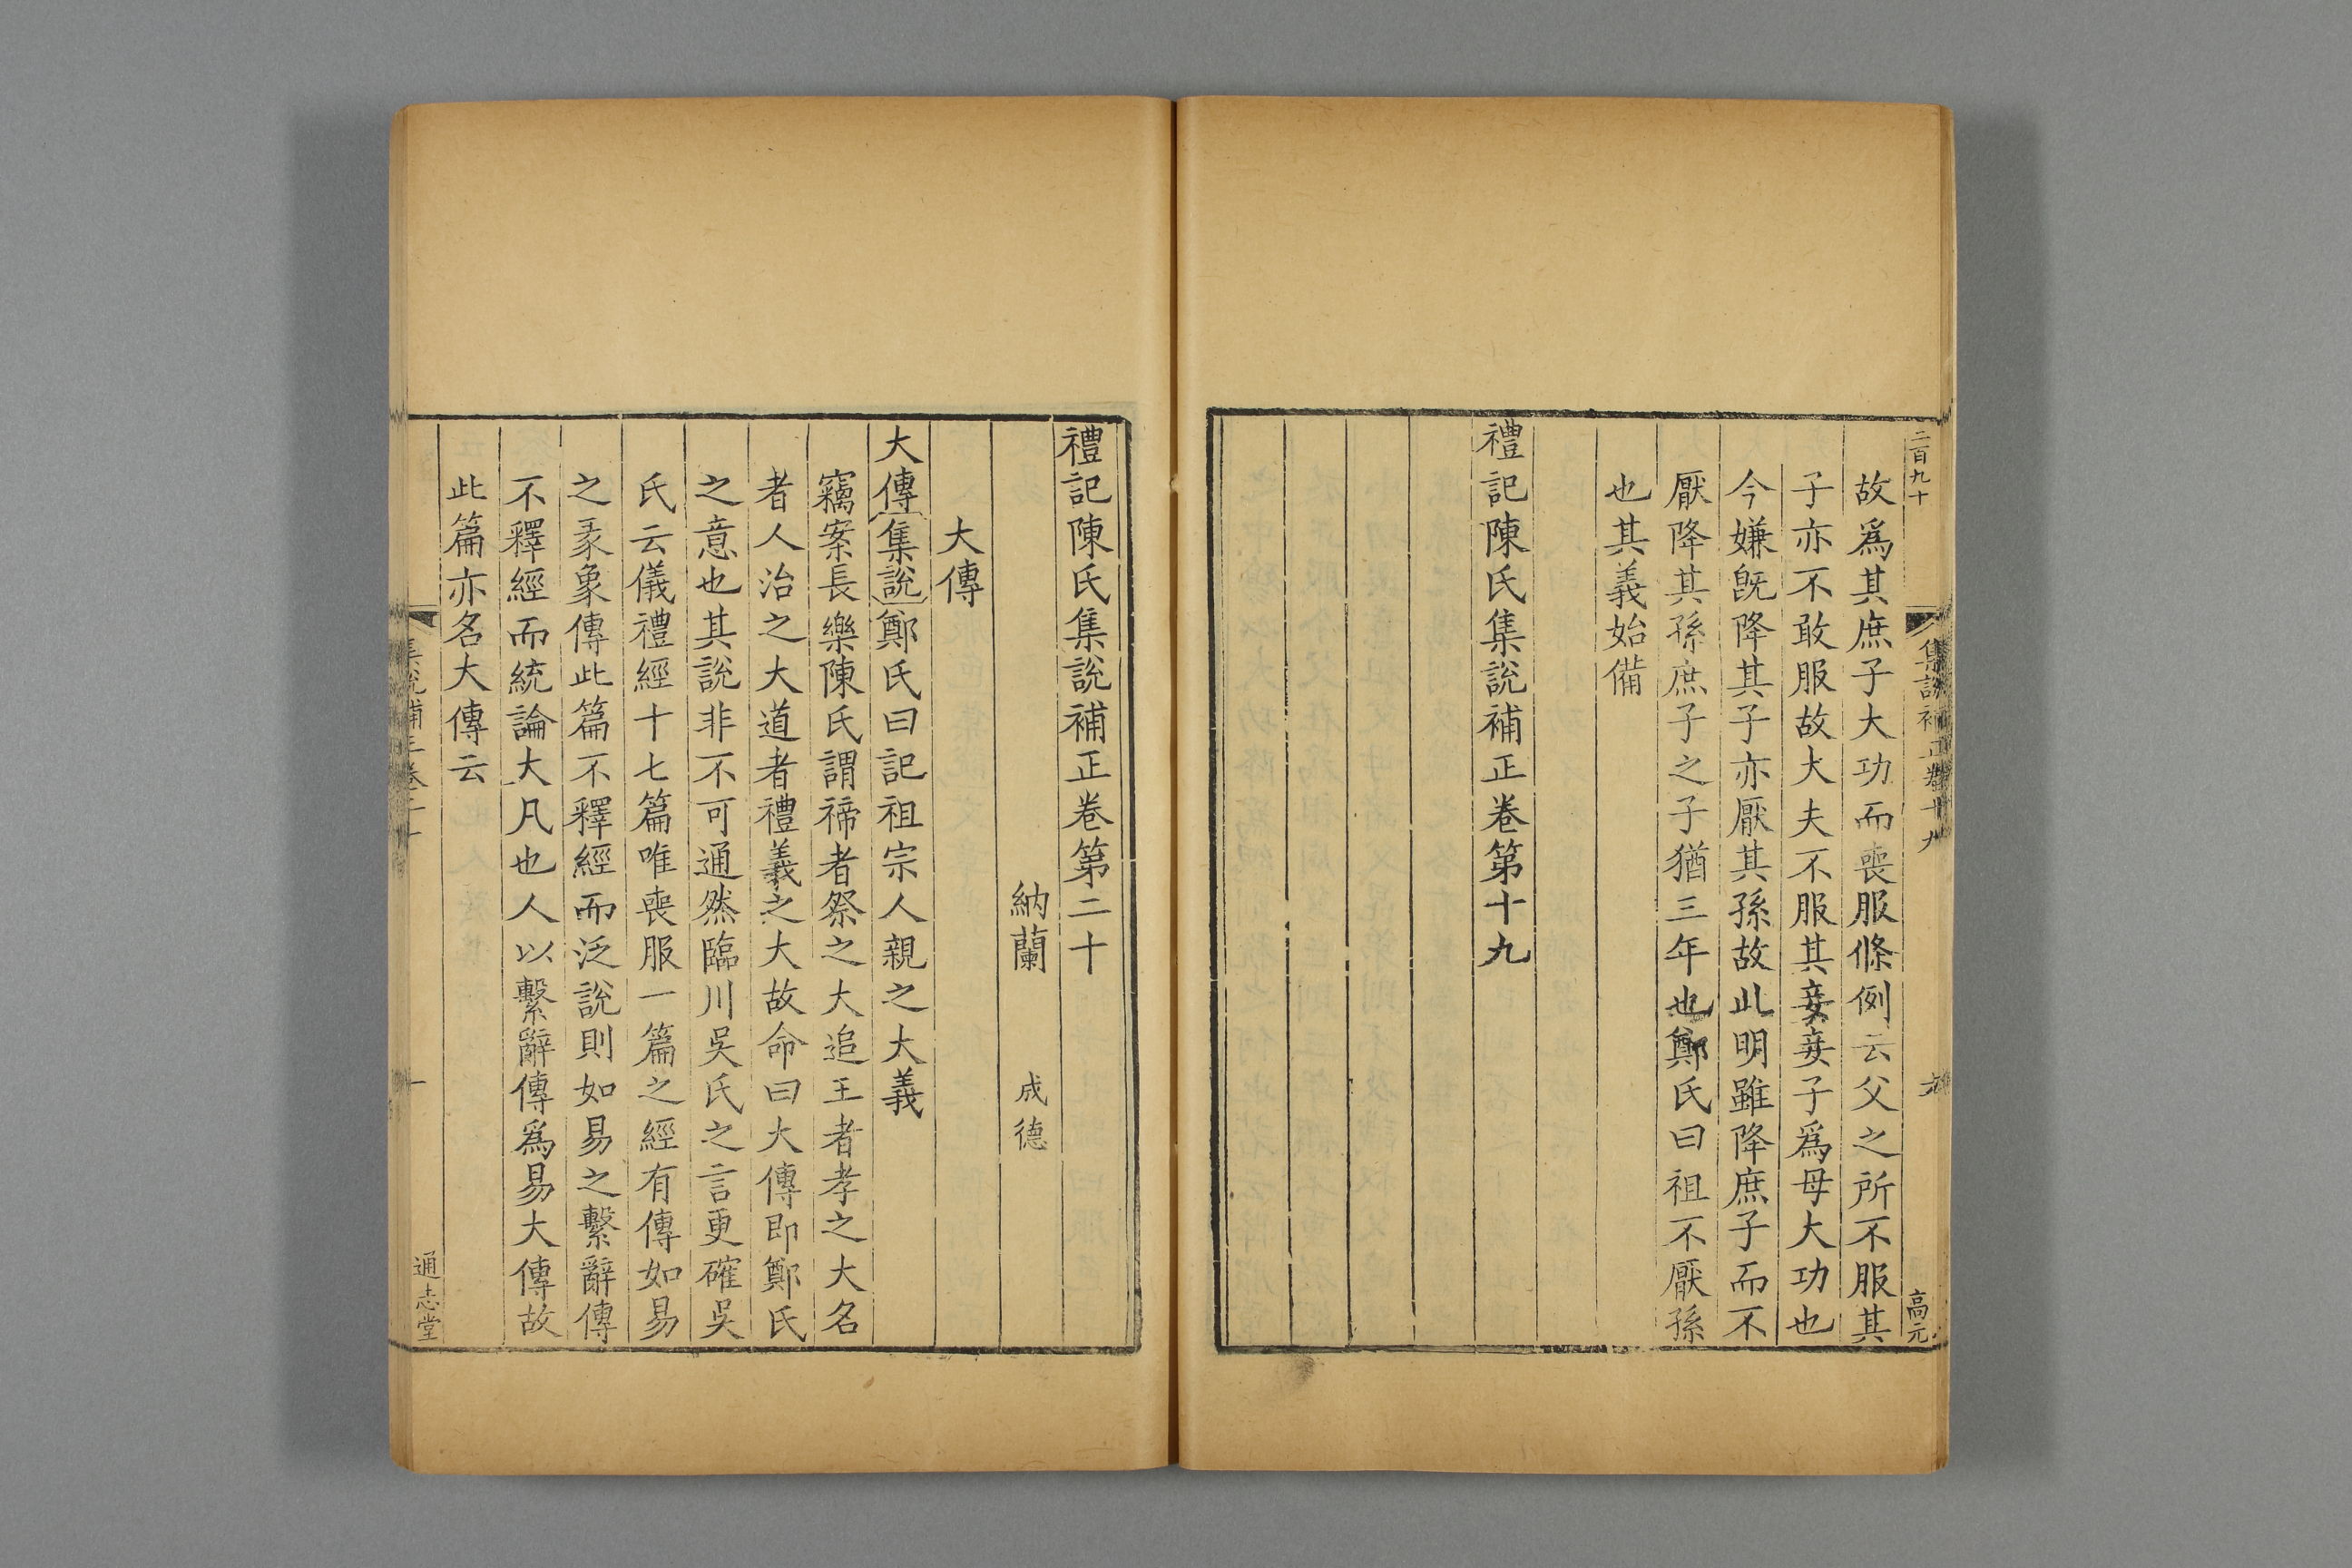 二百九十
集說補正卷十九
高元
故爲其庶子大功而喪服條例云父之所不服其
子亦不敢服故大夫不服其妾妾子爲母大功也
今嫌旣降其子亦厭其孫故此明雖降庶子而不
厭降其孫庶子之子猶三年也鄭氏曰祖不厭孫
也其義始備
禮記陳氏集說補正卷第十九
禮記陳氏集說補正卷第二十
納蘭 成德
大傳
大傳集說鄭氏曰記祖宗人親之大義
竊案長樂陳氏謂禘者祭之大追王者孝之大名
者人治之大道者禮義之大故命曰大傳即鄭氏
之意也其說非不可通然臨川吳氏之言更確吳
氏云儀禮經十七篇唯喪服一篇之經有傳如易
之彖象傳此篇不釋經而泛說則如易之繫辭傳
不釋經而統論大凡也人以繫辭傳爲易大傳故
此篇亦名大傳云
集說補正卷二十
一
通志堂